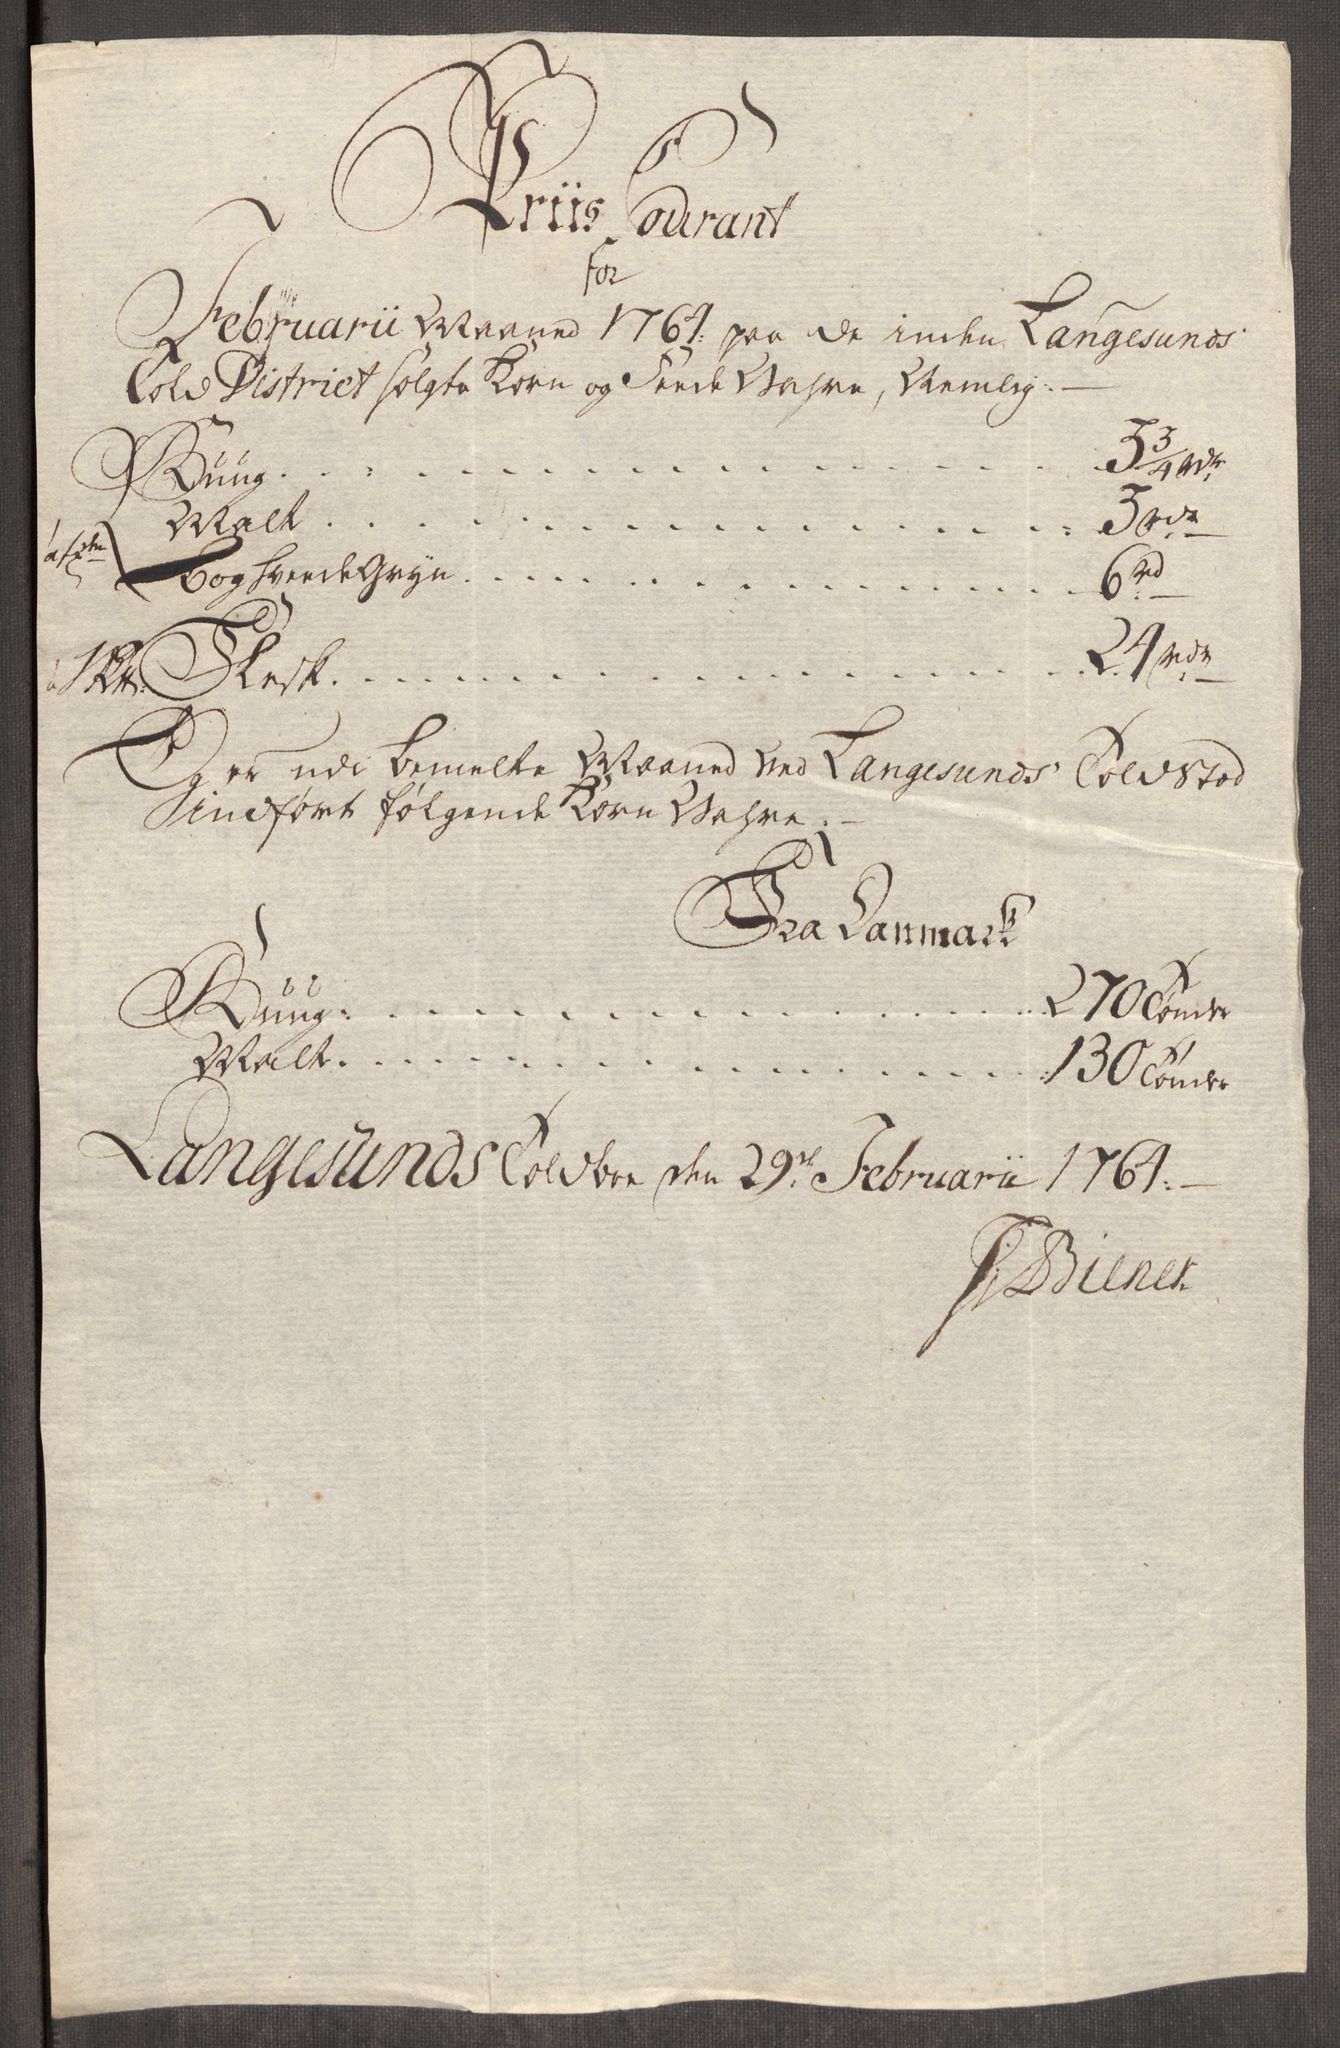 Priis Courant
for
Februarii Maaned 1764: paa de inden Langesunds
Told District solgte Korn og Feede Vahre, Nemlig:
Ruug 3 3/4 rdr
Malt 3 rdr
Boghvede Gryn 6 rd
Flesk 24 rdr
Og er udi bemelte Maaned ved Langesunds Toldsted
indført følgende Korn Vahre:
Fra Danmark
Ruug: 270 Tønder
Malt 130 Tønder
Langesunds Toldboe den 29de Februarii 1764:
Biener